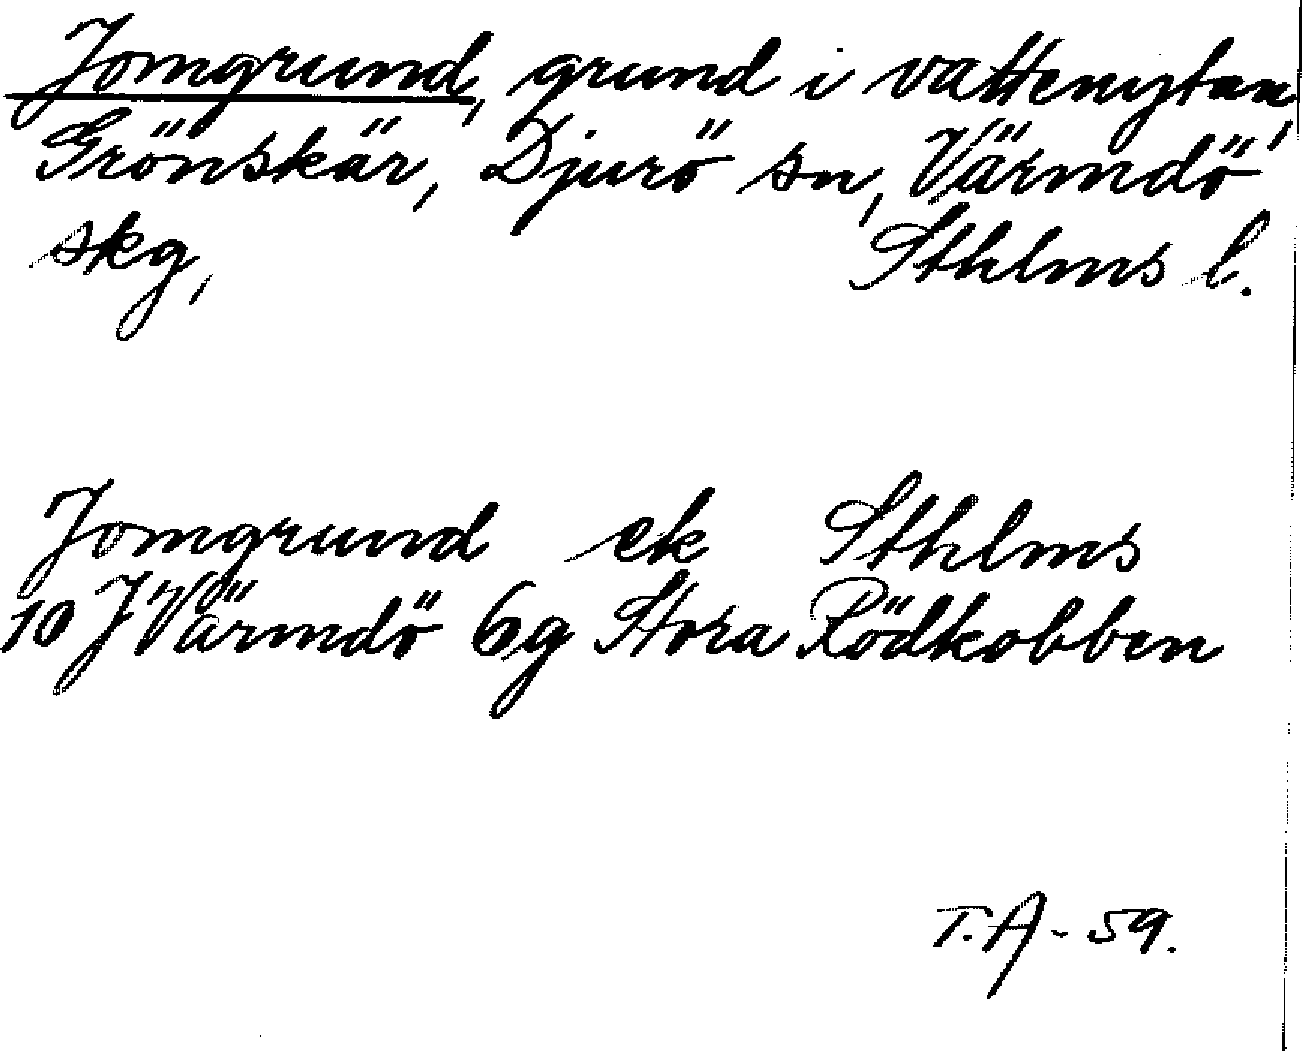 Jomgrund, grund i vattenytan,
Grönskär, Djurö sn, Värmdö
skg, Sthlms l.
Jomgrund ek Sthlms
10 J Värmdö 6g Stora Rödkobben
T.A - 59.